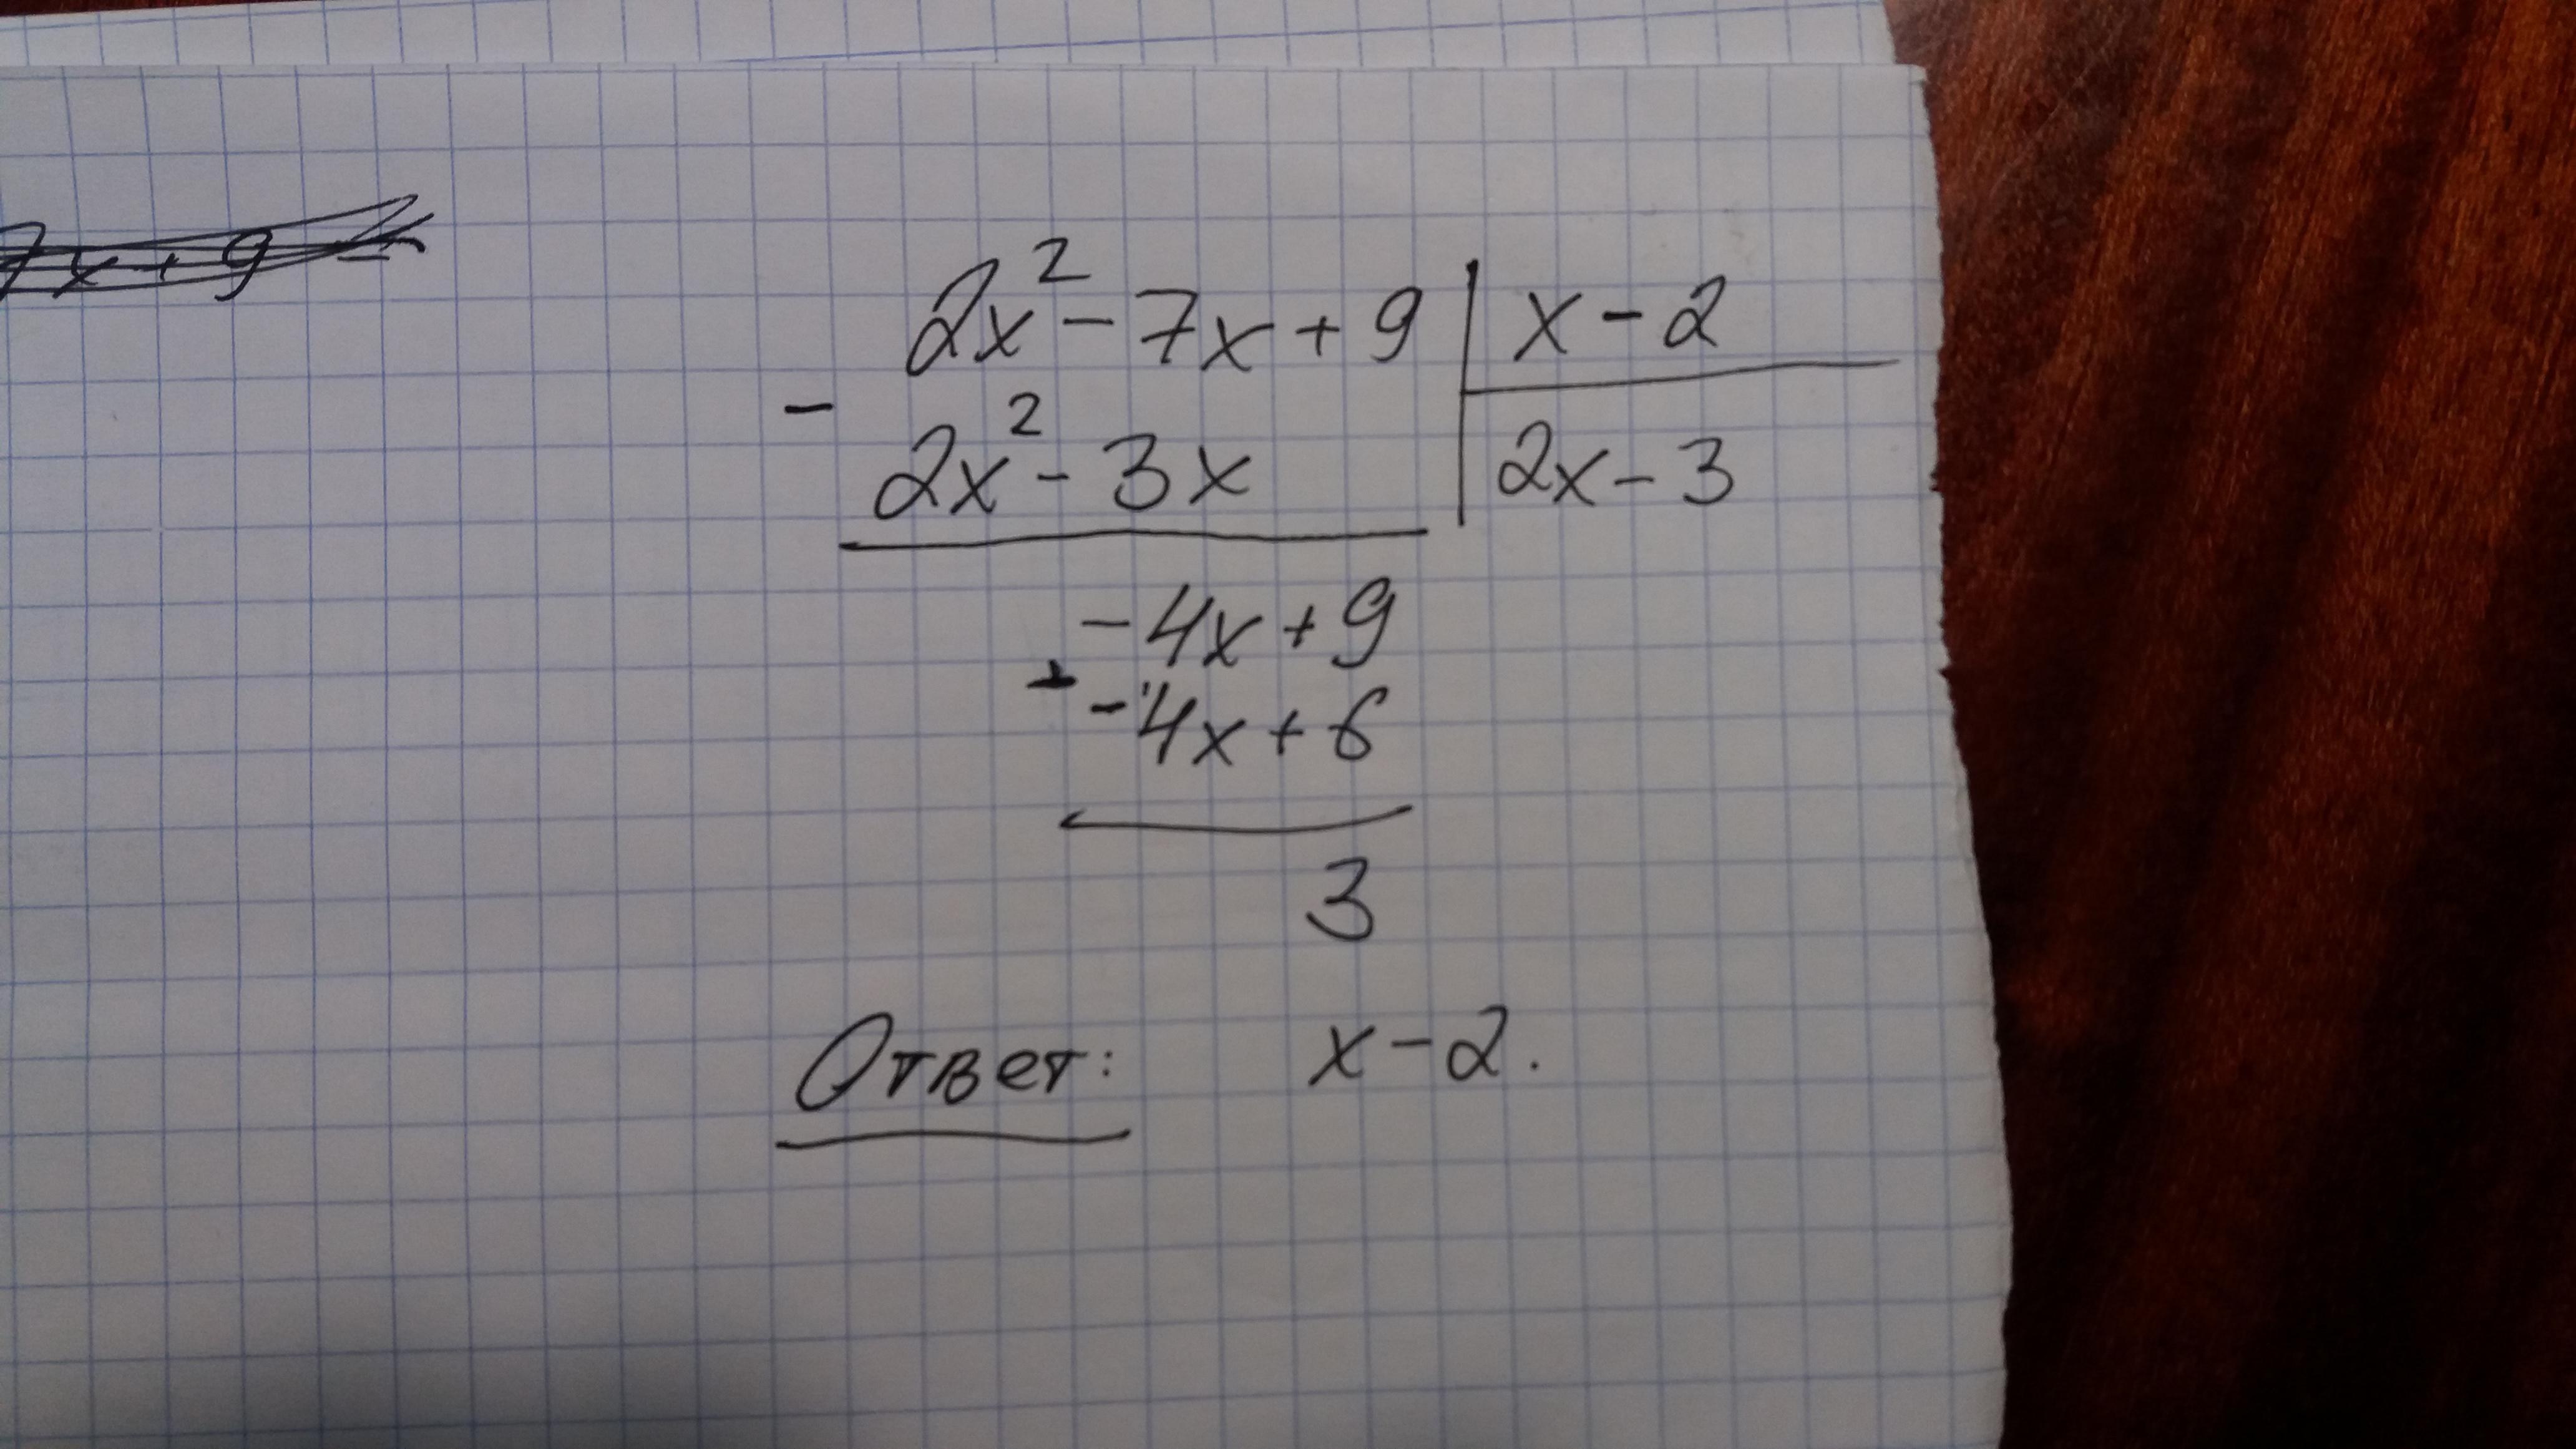 7x+9
2x² - 7x + 9 | x - 2
- 2x² - 3x | 2x - 3
-4x + 9
-4x + 6
3
Ответ: x - 2.